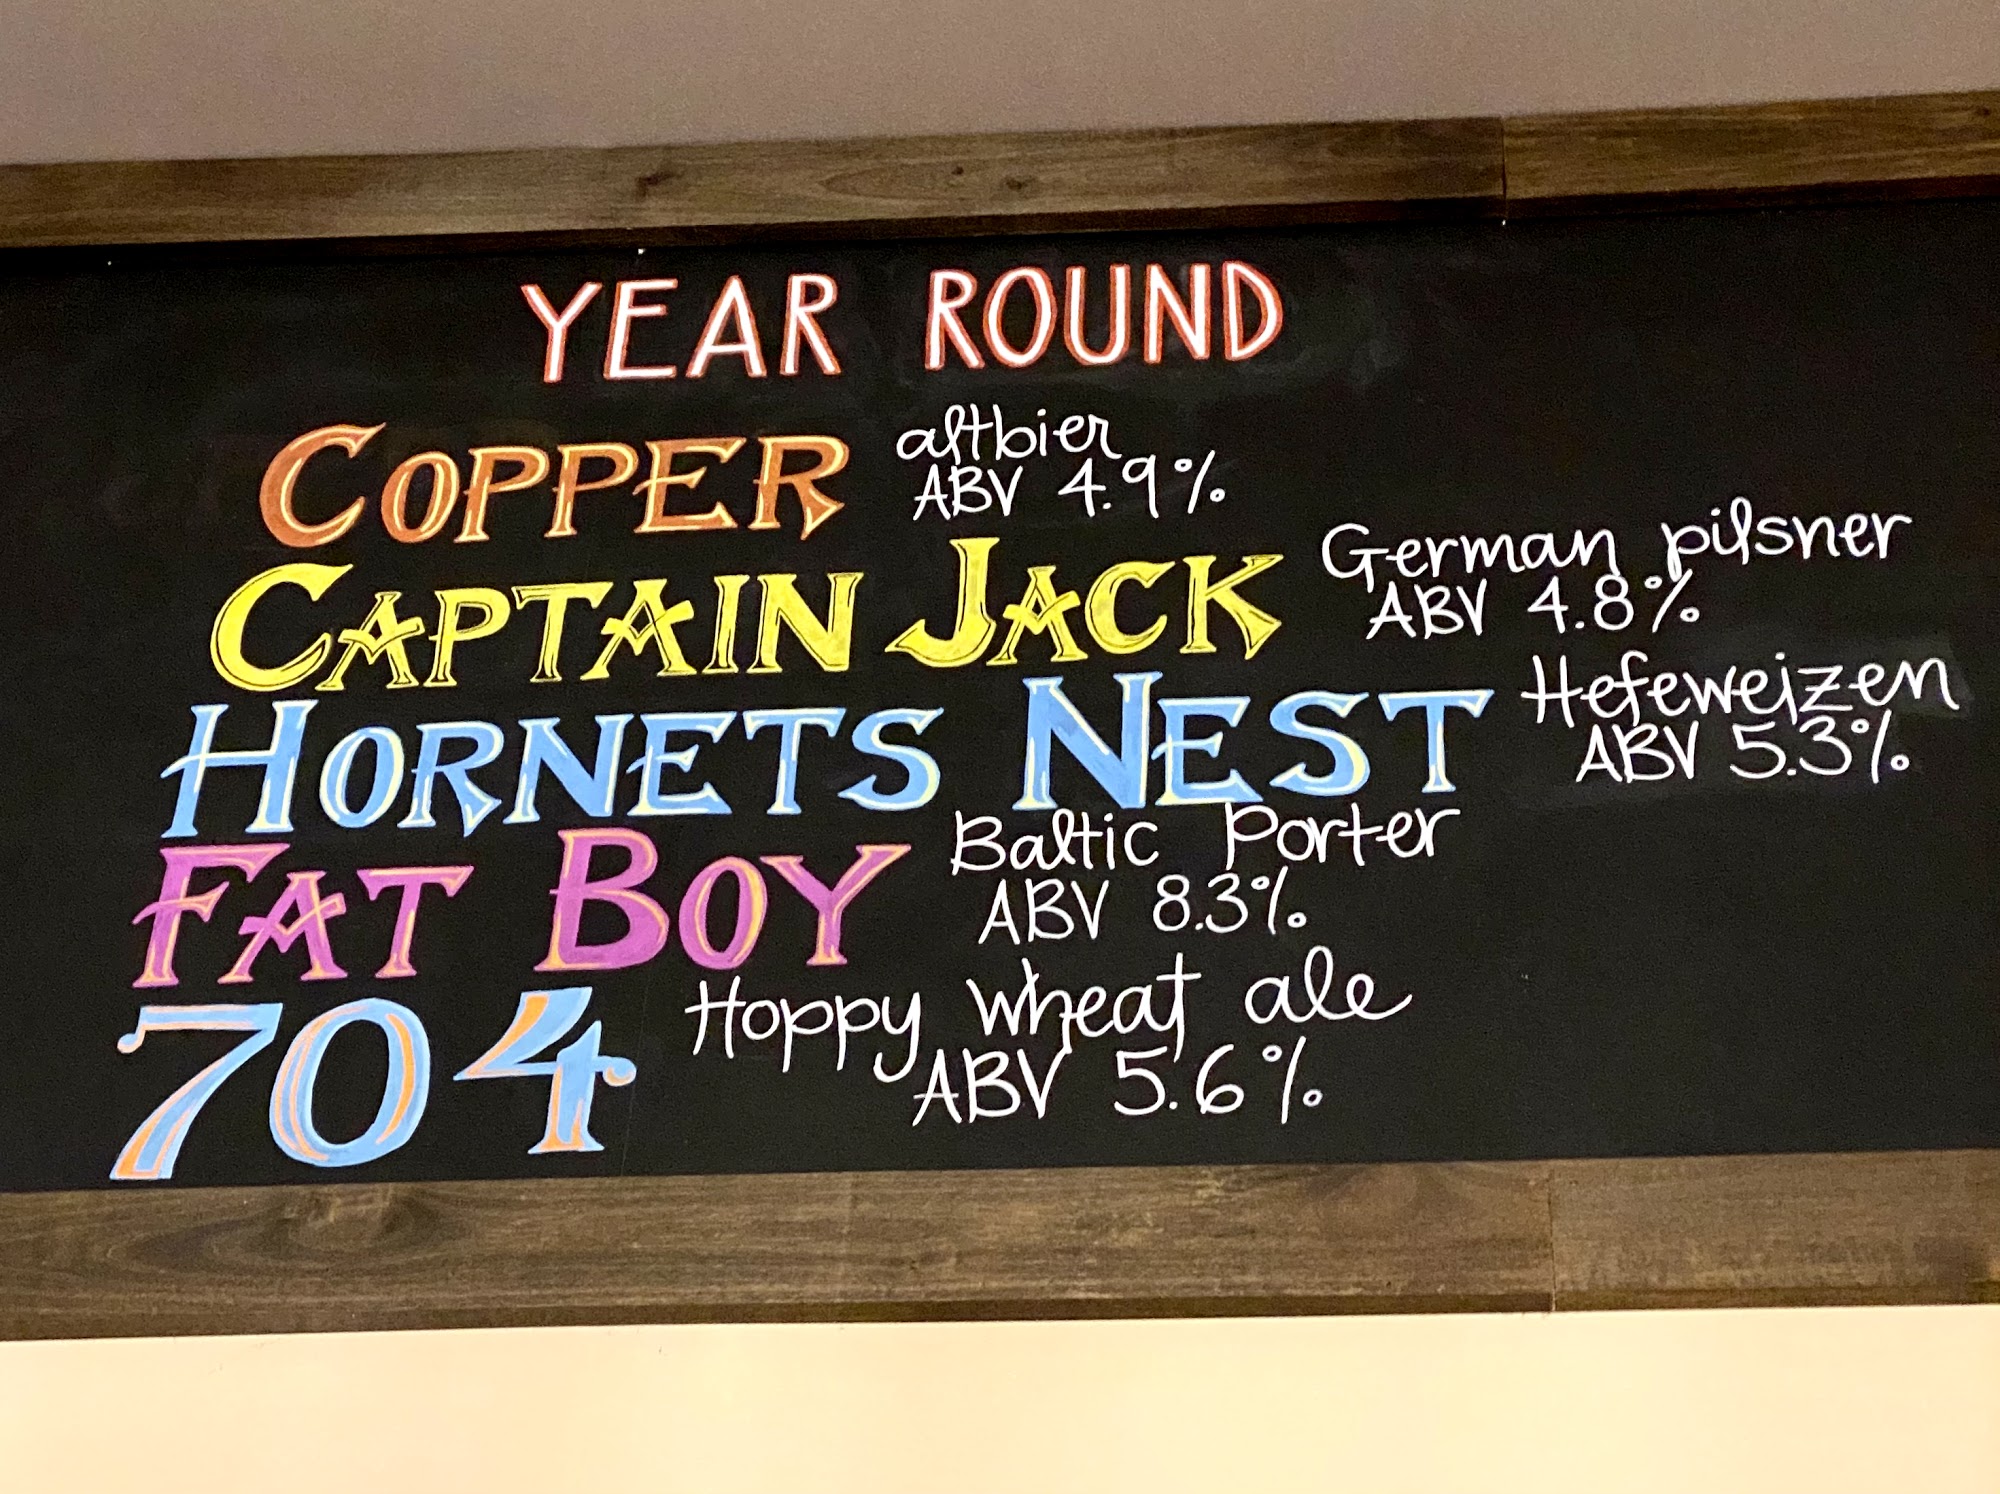 YEAR ROUND
COPPER altbier
ABV 4.9%
CAPTAIN JACK German pilsner
ABV 4.8%
HORNETS NEST Hefeweizen
ABV 5.3%
FAT BOY Baltic Porter
ABV 8.3%
704 Hoppy wheat ale
ABV 5.6%